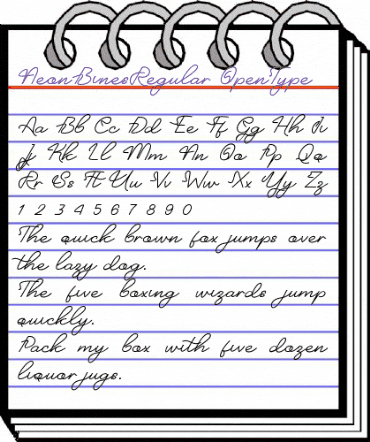 Neon Bines Regular OpenType
Aa Bb Cc Dd Ee Ff Gg Hh Ii
Jj Kk Ll Mm Nn Oo Pp Qq
Rr Ss Tt Uu Vv Ww Xx Yy Zz
1 2 3 4 5 6 7 8 9 0
The quick brown fox jumps over
the lazy dog.
The five boxing wizards jump
quickly.
Pack my box with five dozen
liquor jugs.